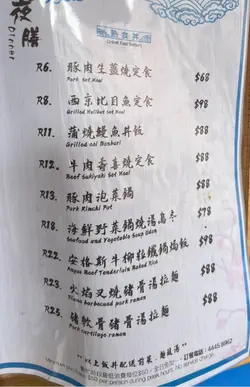 夜膳
Dinner
熱食丼
R6. 豚肉生薑燒定食 $68
Pork Set Meal
R8. 西京比目魚定食 $98
Grilled Halibut Set Meal
R11. 蒲燒鰻魚丼飯 $88
Grilled eel Donburi
R12. 牛肉壽喜燒定食 $88
Beef Sukiyaki Set Meal
R13. 豚肉泡菜鍋 $88
Pork Kimchi Pot
R18. 海鮮野菜鍋燒湯烏冬 $78
Seafood and Vegetable Soup Udon
R22. 安格斯牛柳粒鐵鍋焗飯 $98
Angus Beef Tenderloin Baked Rice
R23. 火焰叉燒豬骨湯拉麵 $88
Flame barbecued pork ramen
R25. 豬軟骨豬骨湯拉麵 $88
Pork cartilage ramen
~~以上飯丼配送前菜、麵豉湯~~
訂餐電話: 4445 8962
$50 per person during peak hours. No service charge.